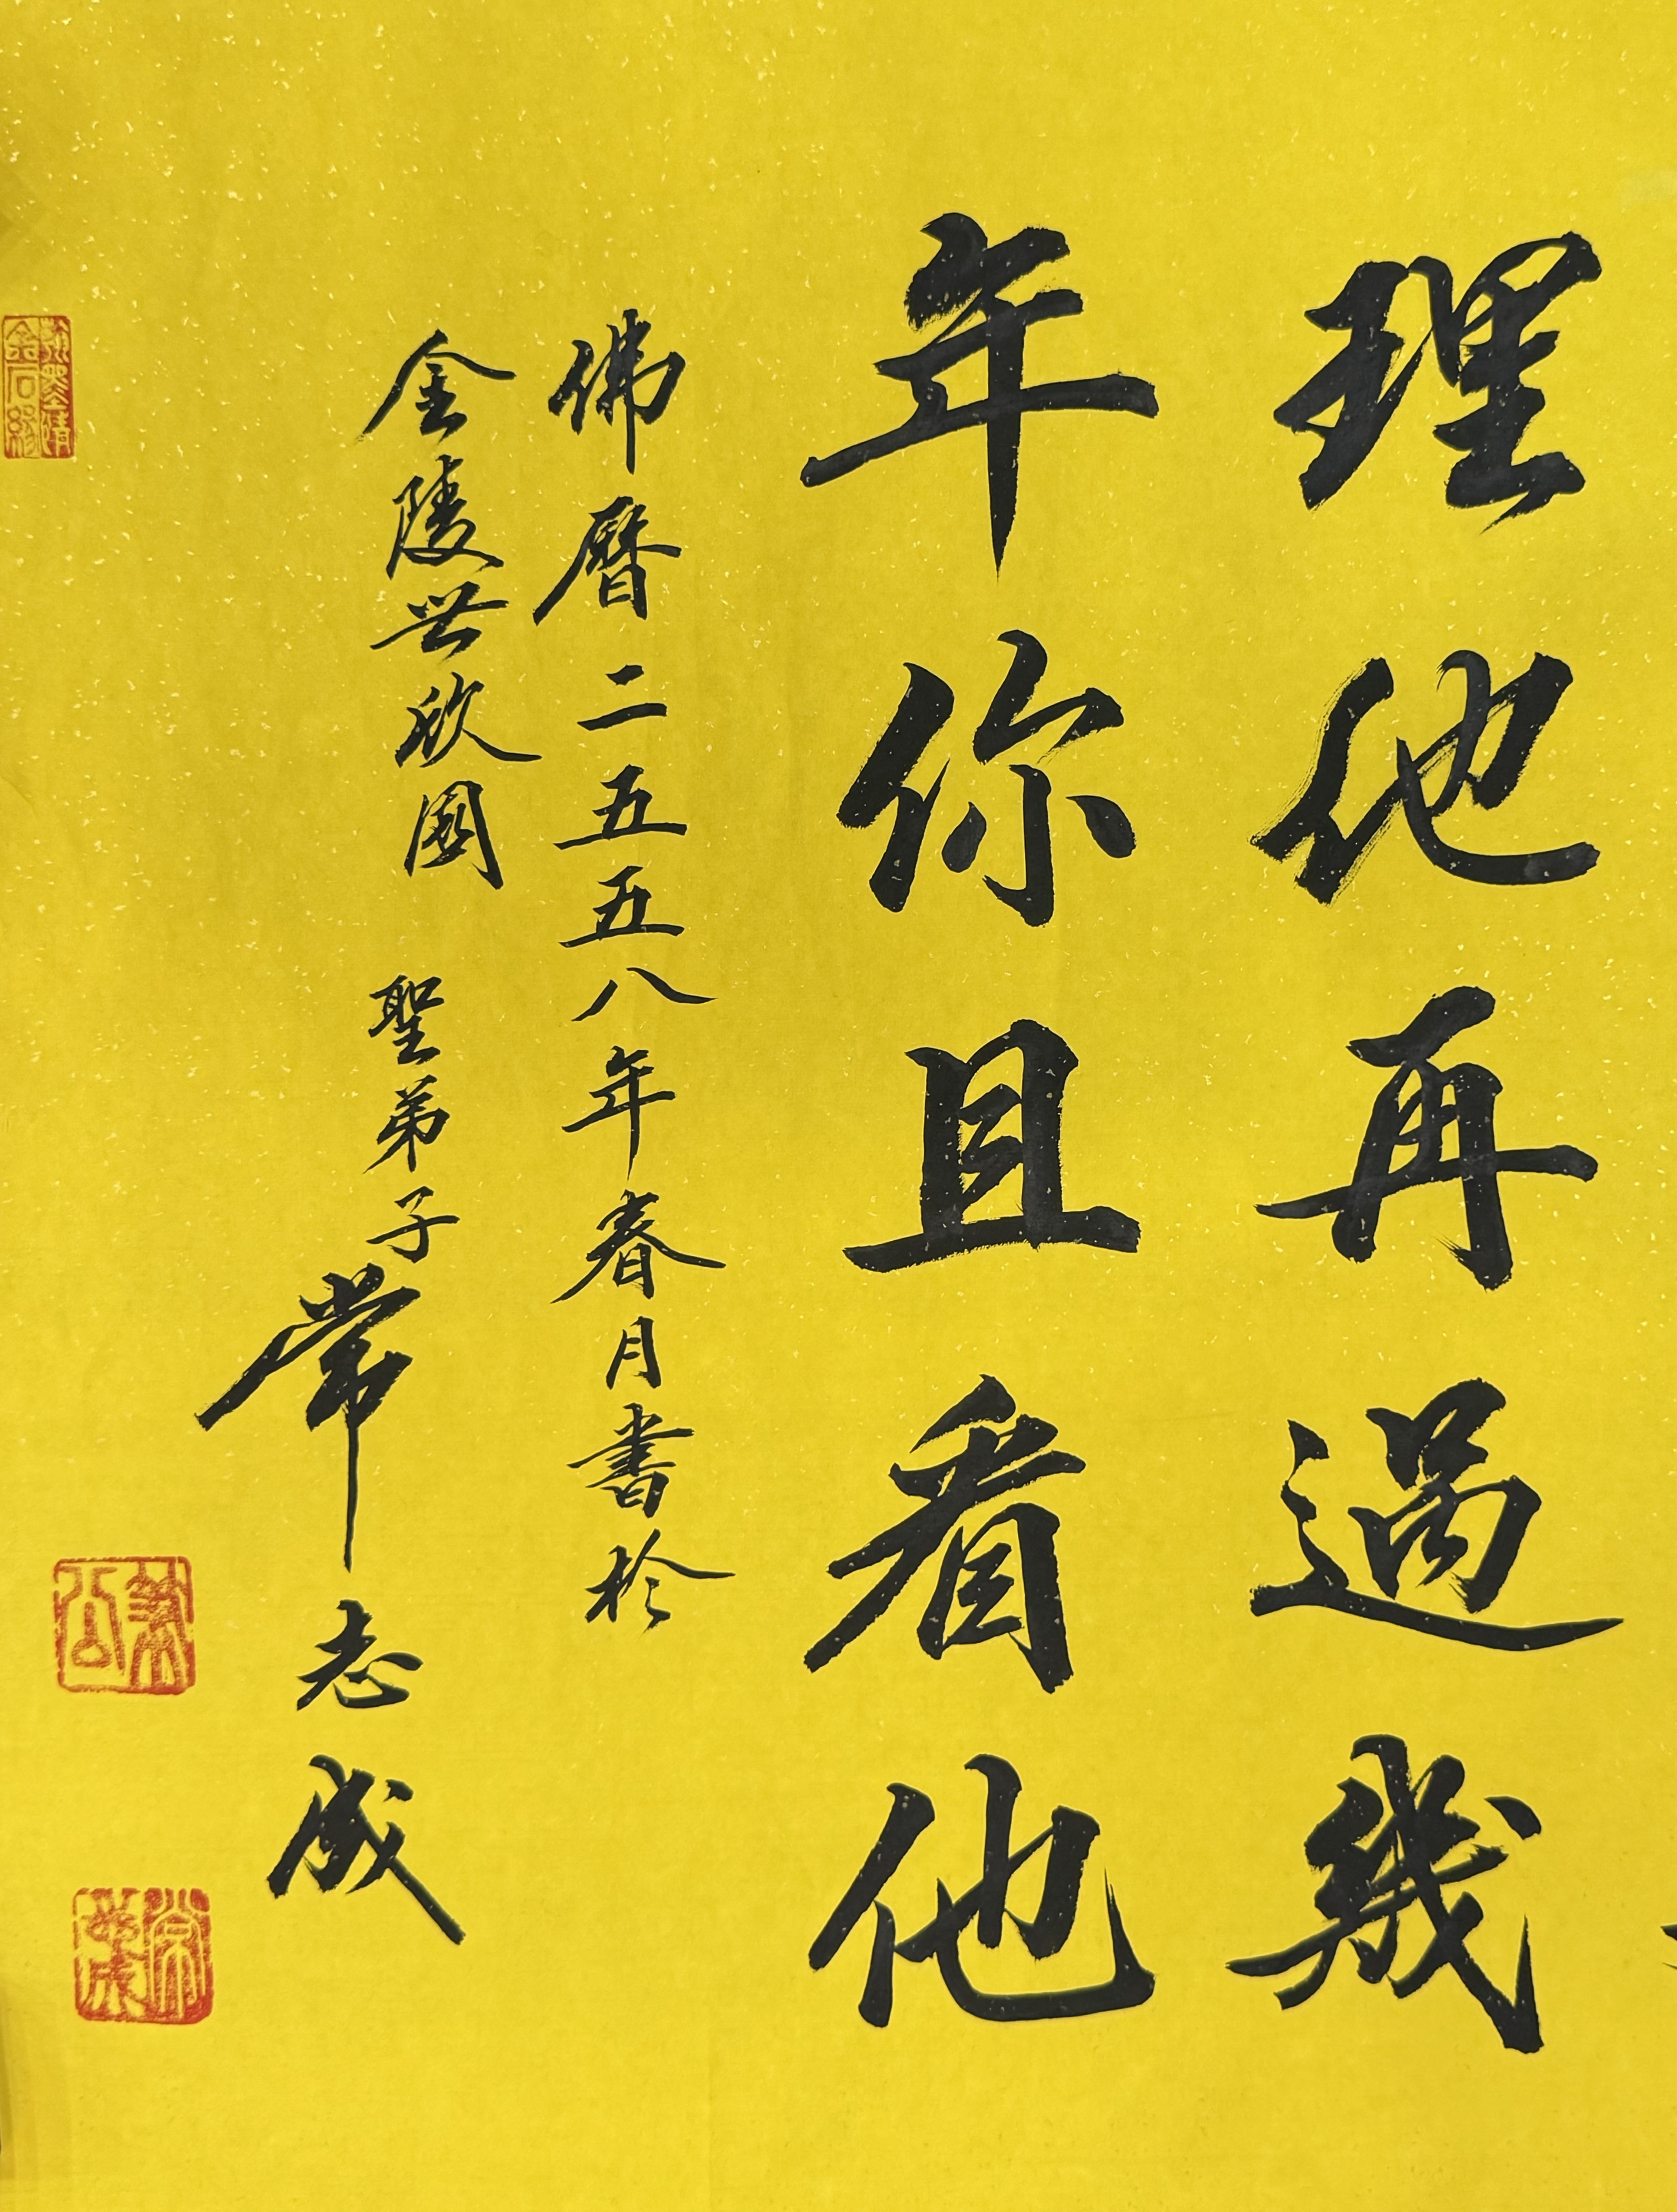 理他再過幾
年你且看他
佛曆二五五八年春月書於
金陵世欣園 聖弟子常志成
翰墨情
金石緣